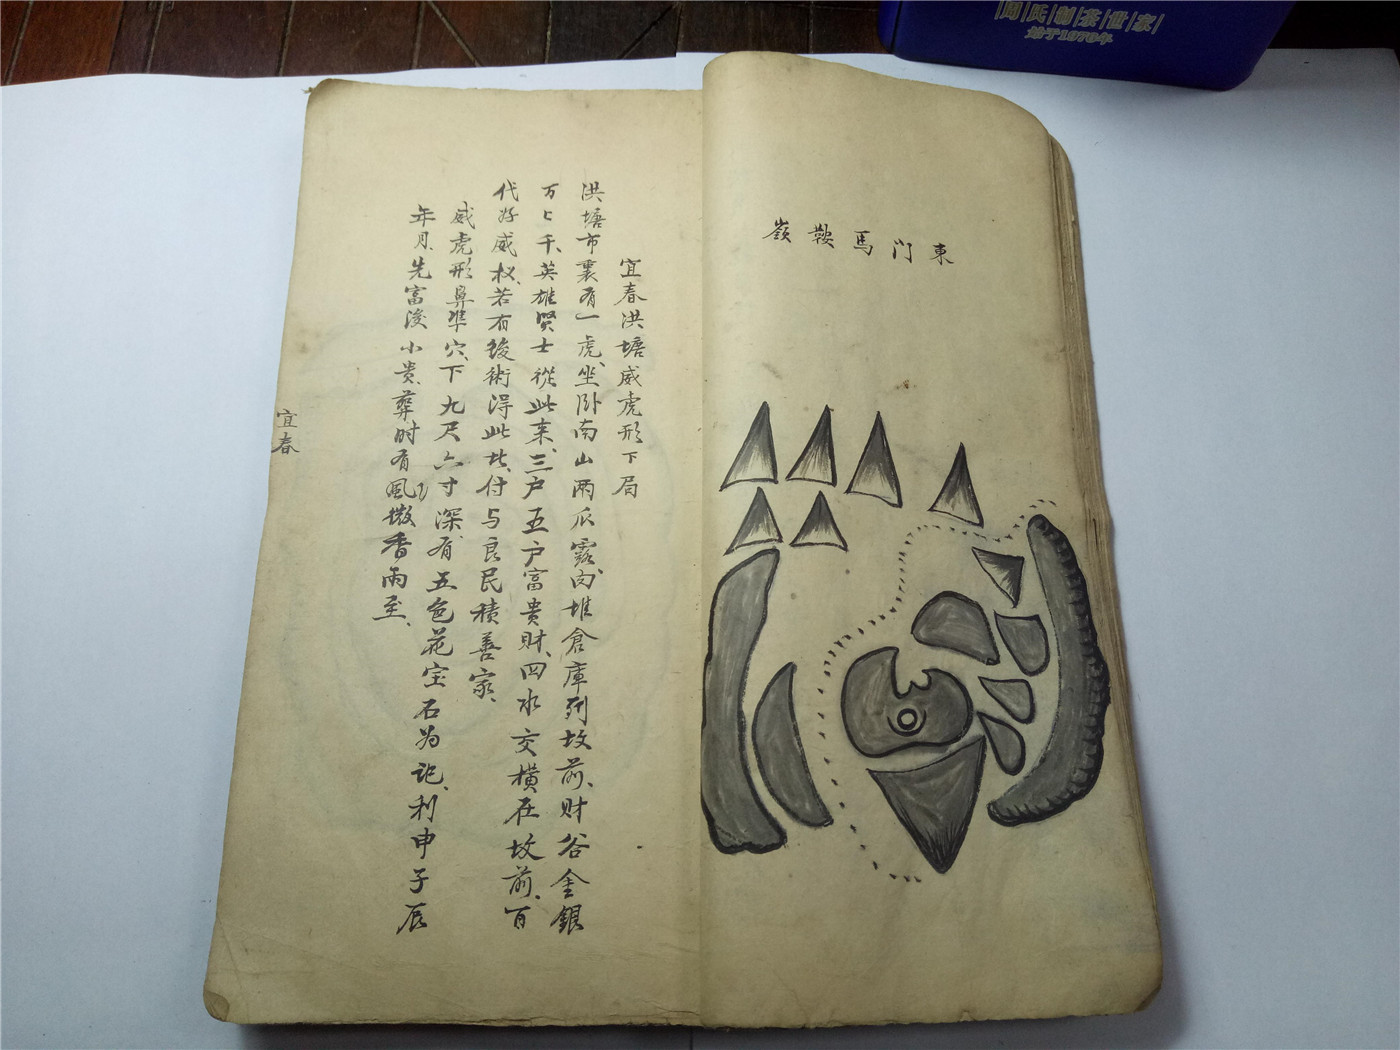 周氏制茶世家
始于1978年
東门馬鞍嶺
宜春洪塘威虎形下局
洪塘市裏有一虎、坐卧南山两爪露、肉堆倉庫列坟前、财谷金銀
万〻千、英雄贤士從此来、三户五户富贵财、四水交横在坟前、百
代好威权、若有後術得此地、付与良民積善家、
威虎形鼻準穴、下九尺六寸深、有五色花宝石为記、利申子辰
年月、先富後小贵、葬时有風、撒香雨至、
宜春